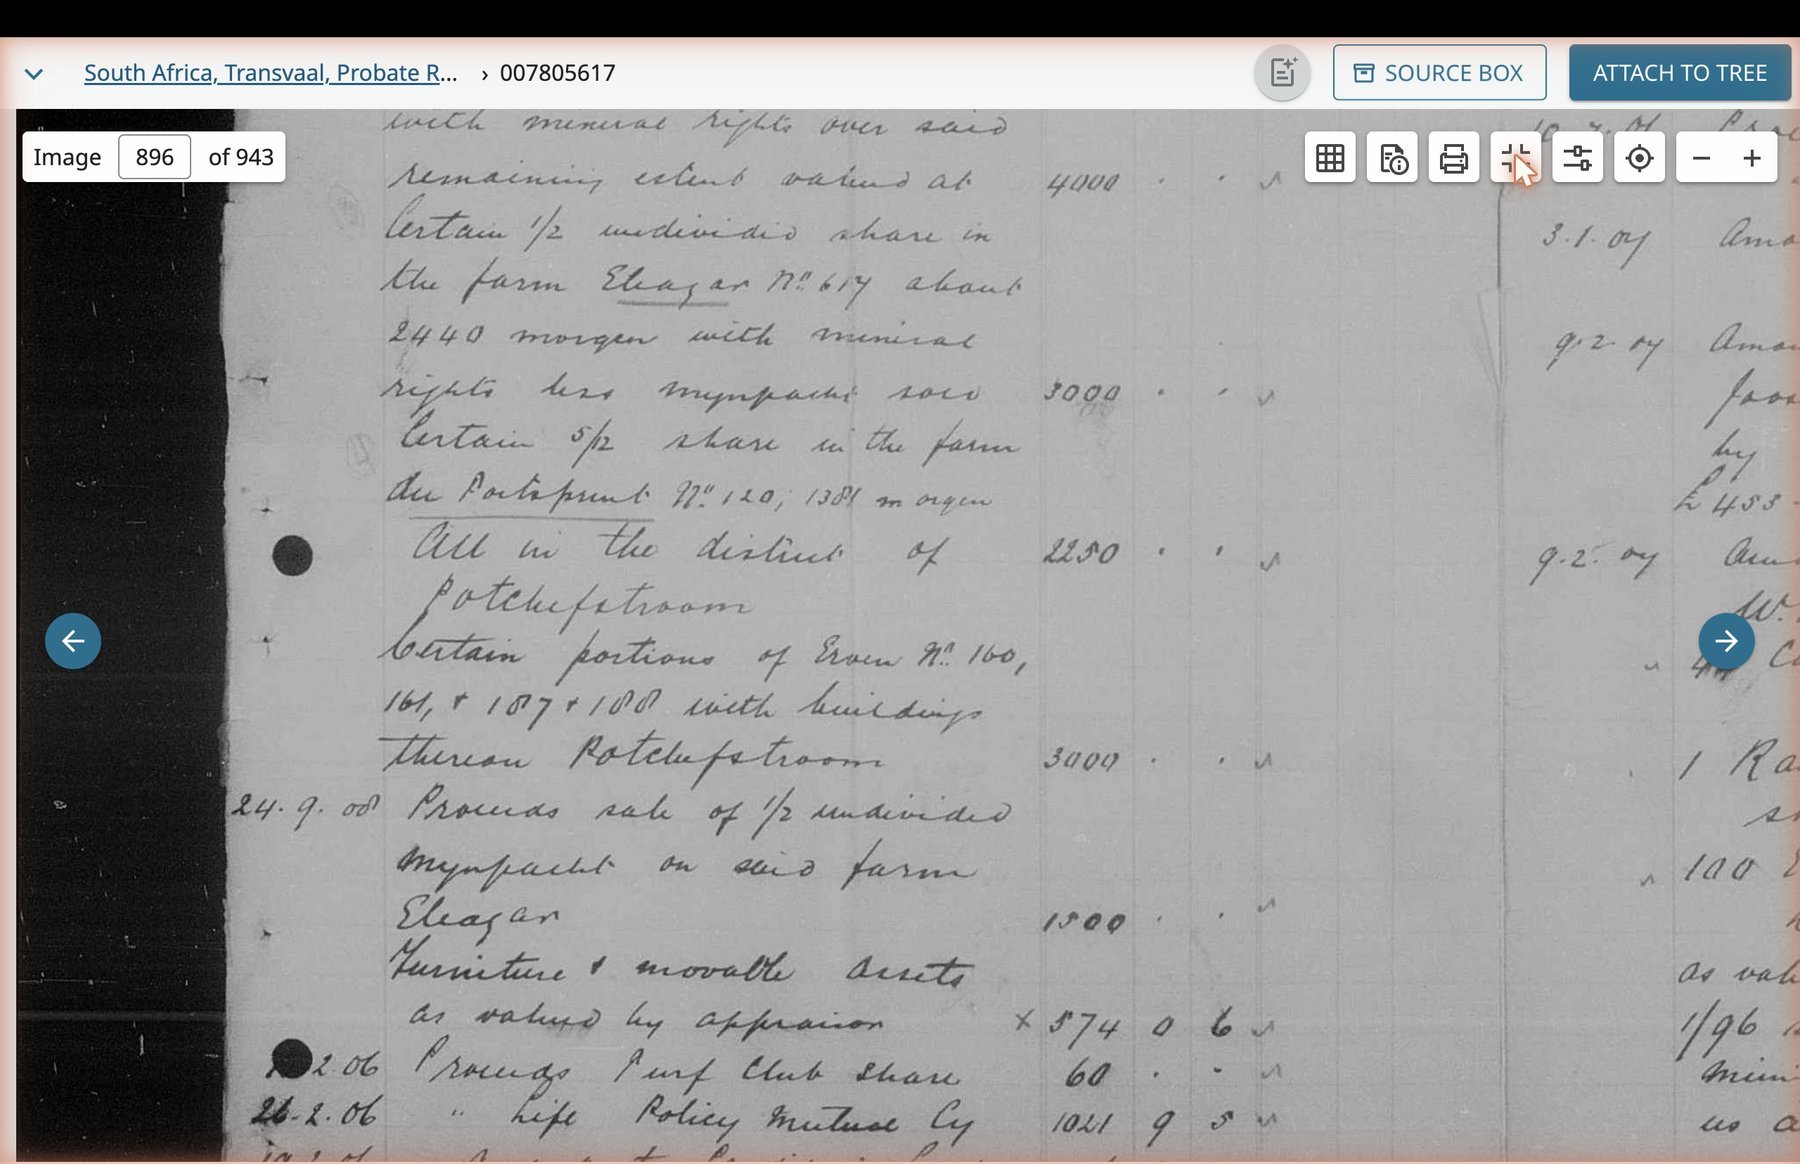 South Africa, Transvaal, Probate R... › 007805617
SOURCE BOX
ATTACH TO TREE
Image 896 of 943
with mineral rights over said
remaining extent valued at 4000 . .
Certain 1/2 undivided share in
the farm Eleazar No. 617 about
2440 morgen with mineral
rights less mynpacht said 3000 . .
Certain 5/12 share in the farm
No. 120; 1381 morgen
All in the district of 2250 . .
Potchefstroom
Certain portions of Erven No. 160,
161, + 187 + 188 with buildings
thereon Potchefstroom 3000 . .
24.9.08 Proceeds sale of 1/2 undivided
mynpacht on said farm
Eleazar 1500 . .
Furniture & movable assets
as valued by appraisor x 574 0 6
2.06 Proceeds Turf Club share 60 . .
26.2.06 " Life Policy Mutual Cy 1021 9 5
3.1.07
9.2.07
by
£453
9.2.07
W.
1
100
1/96